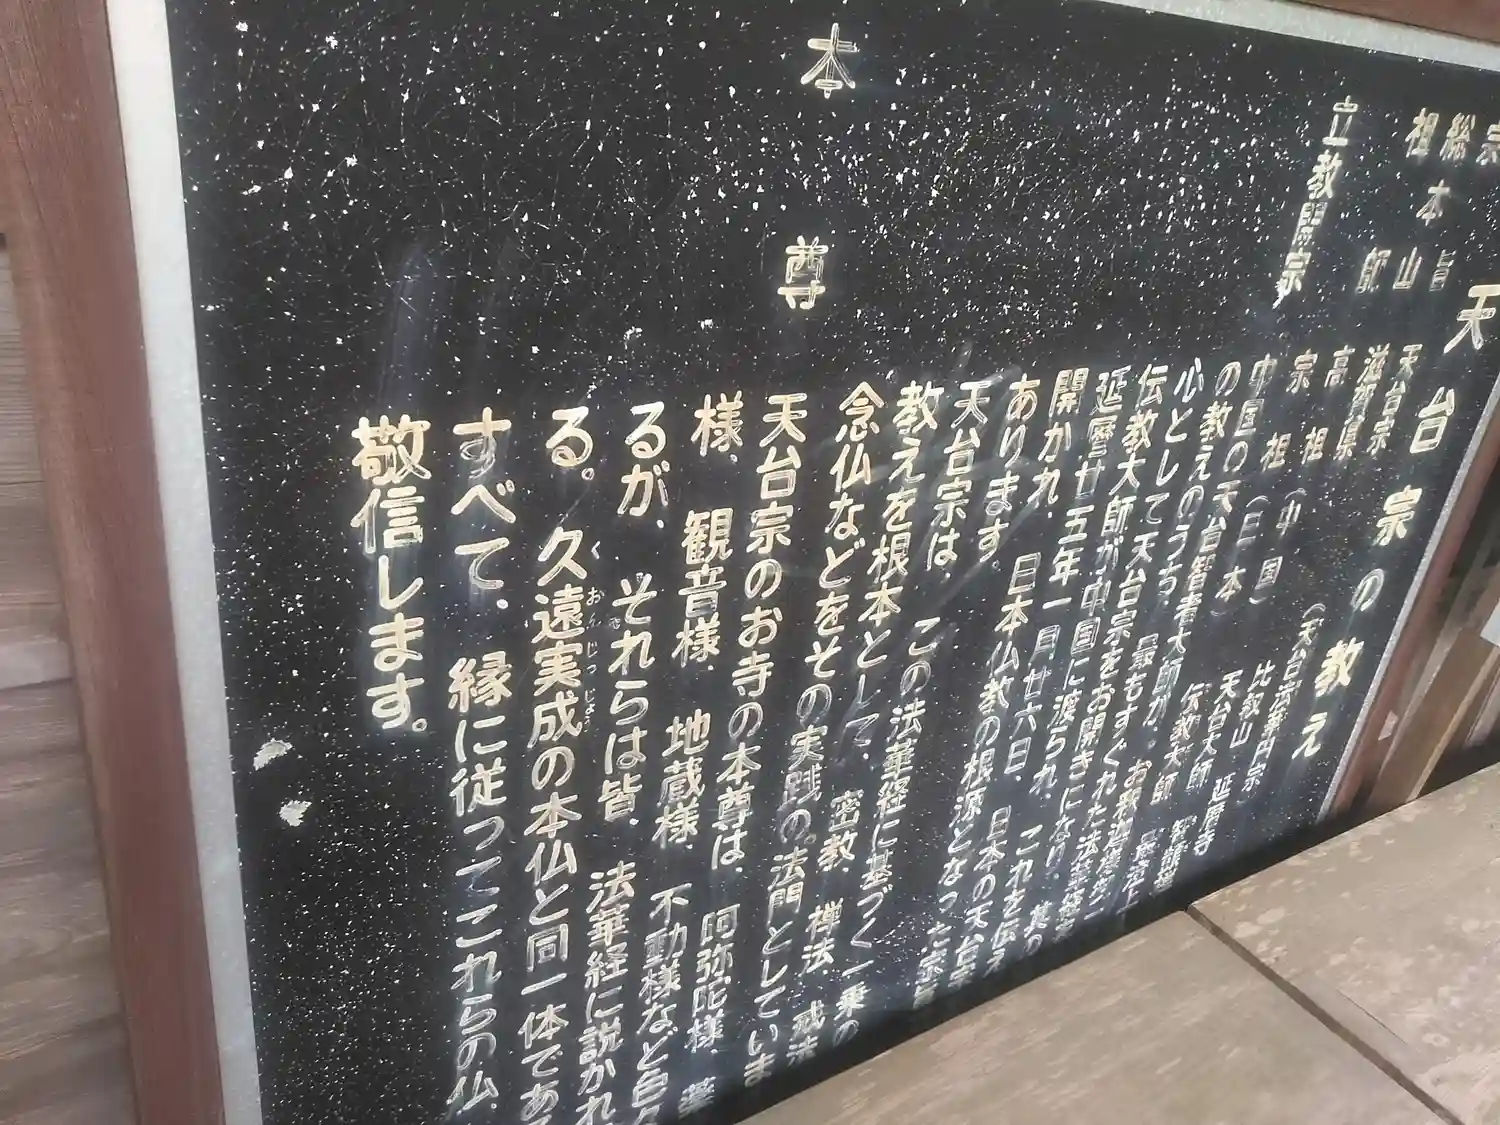 天台宗の教え
宗旨 天台宗 (天台法華円宗)
総本山 滋賀県 比叡山 延暦寺
祖師 高祖 (中国) 天台大師
宗祖 (日本) 伝教大師
立教開宗
中国の天台智者大師が、
の教えのうち、最もすぐれた法華経を
心として天台宗をお開きになり、其の
伝教大師が中国に渡られ、これを伝え
延暦廿五年一月廿六日、日本の天台宗
開かれ、日本仏教の根源となった宗
あります。
天台宗は、この法華経に基づく一乗の
教えを根本として、密教、禅法、戒法
念仏などをその実践の法門としていま
本尊
天台宗のお寺の本尊は、阿弥陀様、薬
様、観音様、地蔵様、不動様など色々
るが、それらは皆、法華経に説かれ
る。久遠実成の本仏と同一体であ
すべて、縁に従ってこれらの仏、
敬信します。